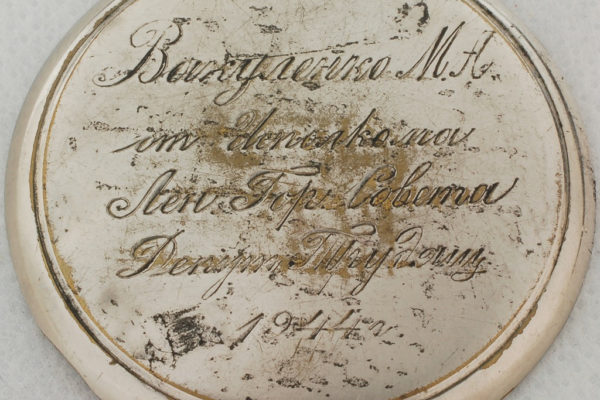 Вакуленко М.А.
от Исполкома
Лен. Гор. Совета
Депут. Трудящ.
1944 г.